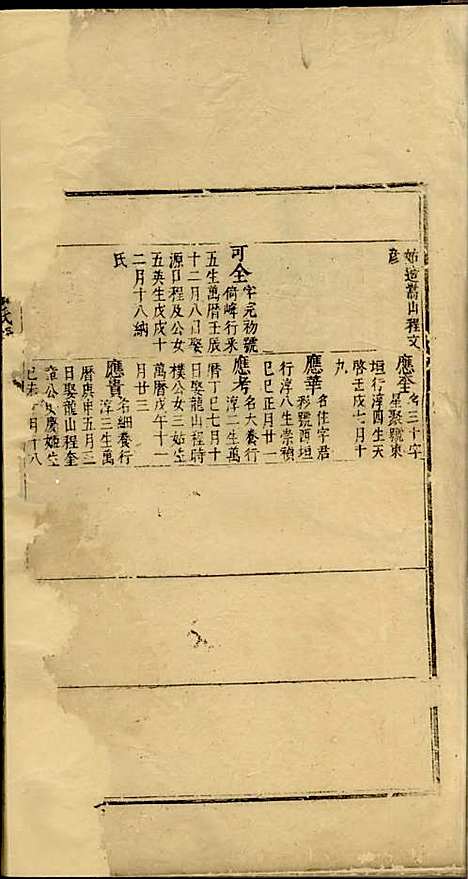 始遷嵩山程文
彥
可全字完初號
倚峰行來
五生萬曆壬辰
十二月八日娶
源口程及公女
五英生戊戌十
二月十八納
氏
應奎名三十字
星聚號東
垣行淳四生天
啓壬戌七月十
九
應華名佳字君
彩號西垣
行淳八生崇禎
己巳正月廿一
應考名大養行
淳二生萬
曆丁巳七月十
日娶龍山程時
樸公女三姑生
萬曆戊午十一
月廿三
應貴名細養行
淳三生萬
曆庚申五月三
日娶龍山程奎
章公女慶姬生
己未 月十八
氏